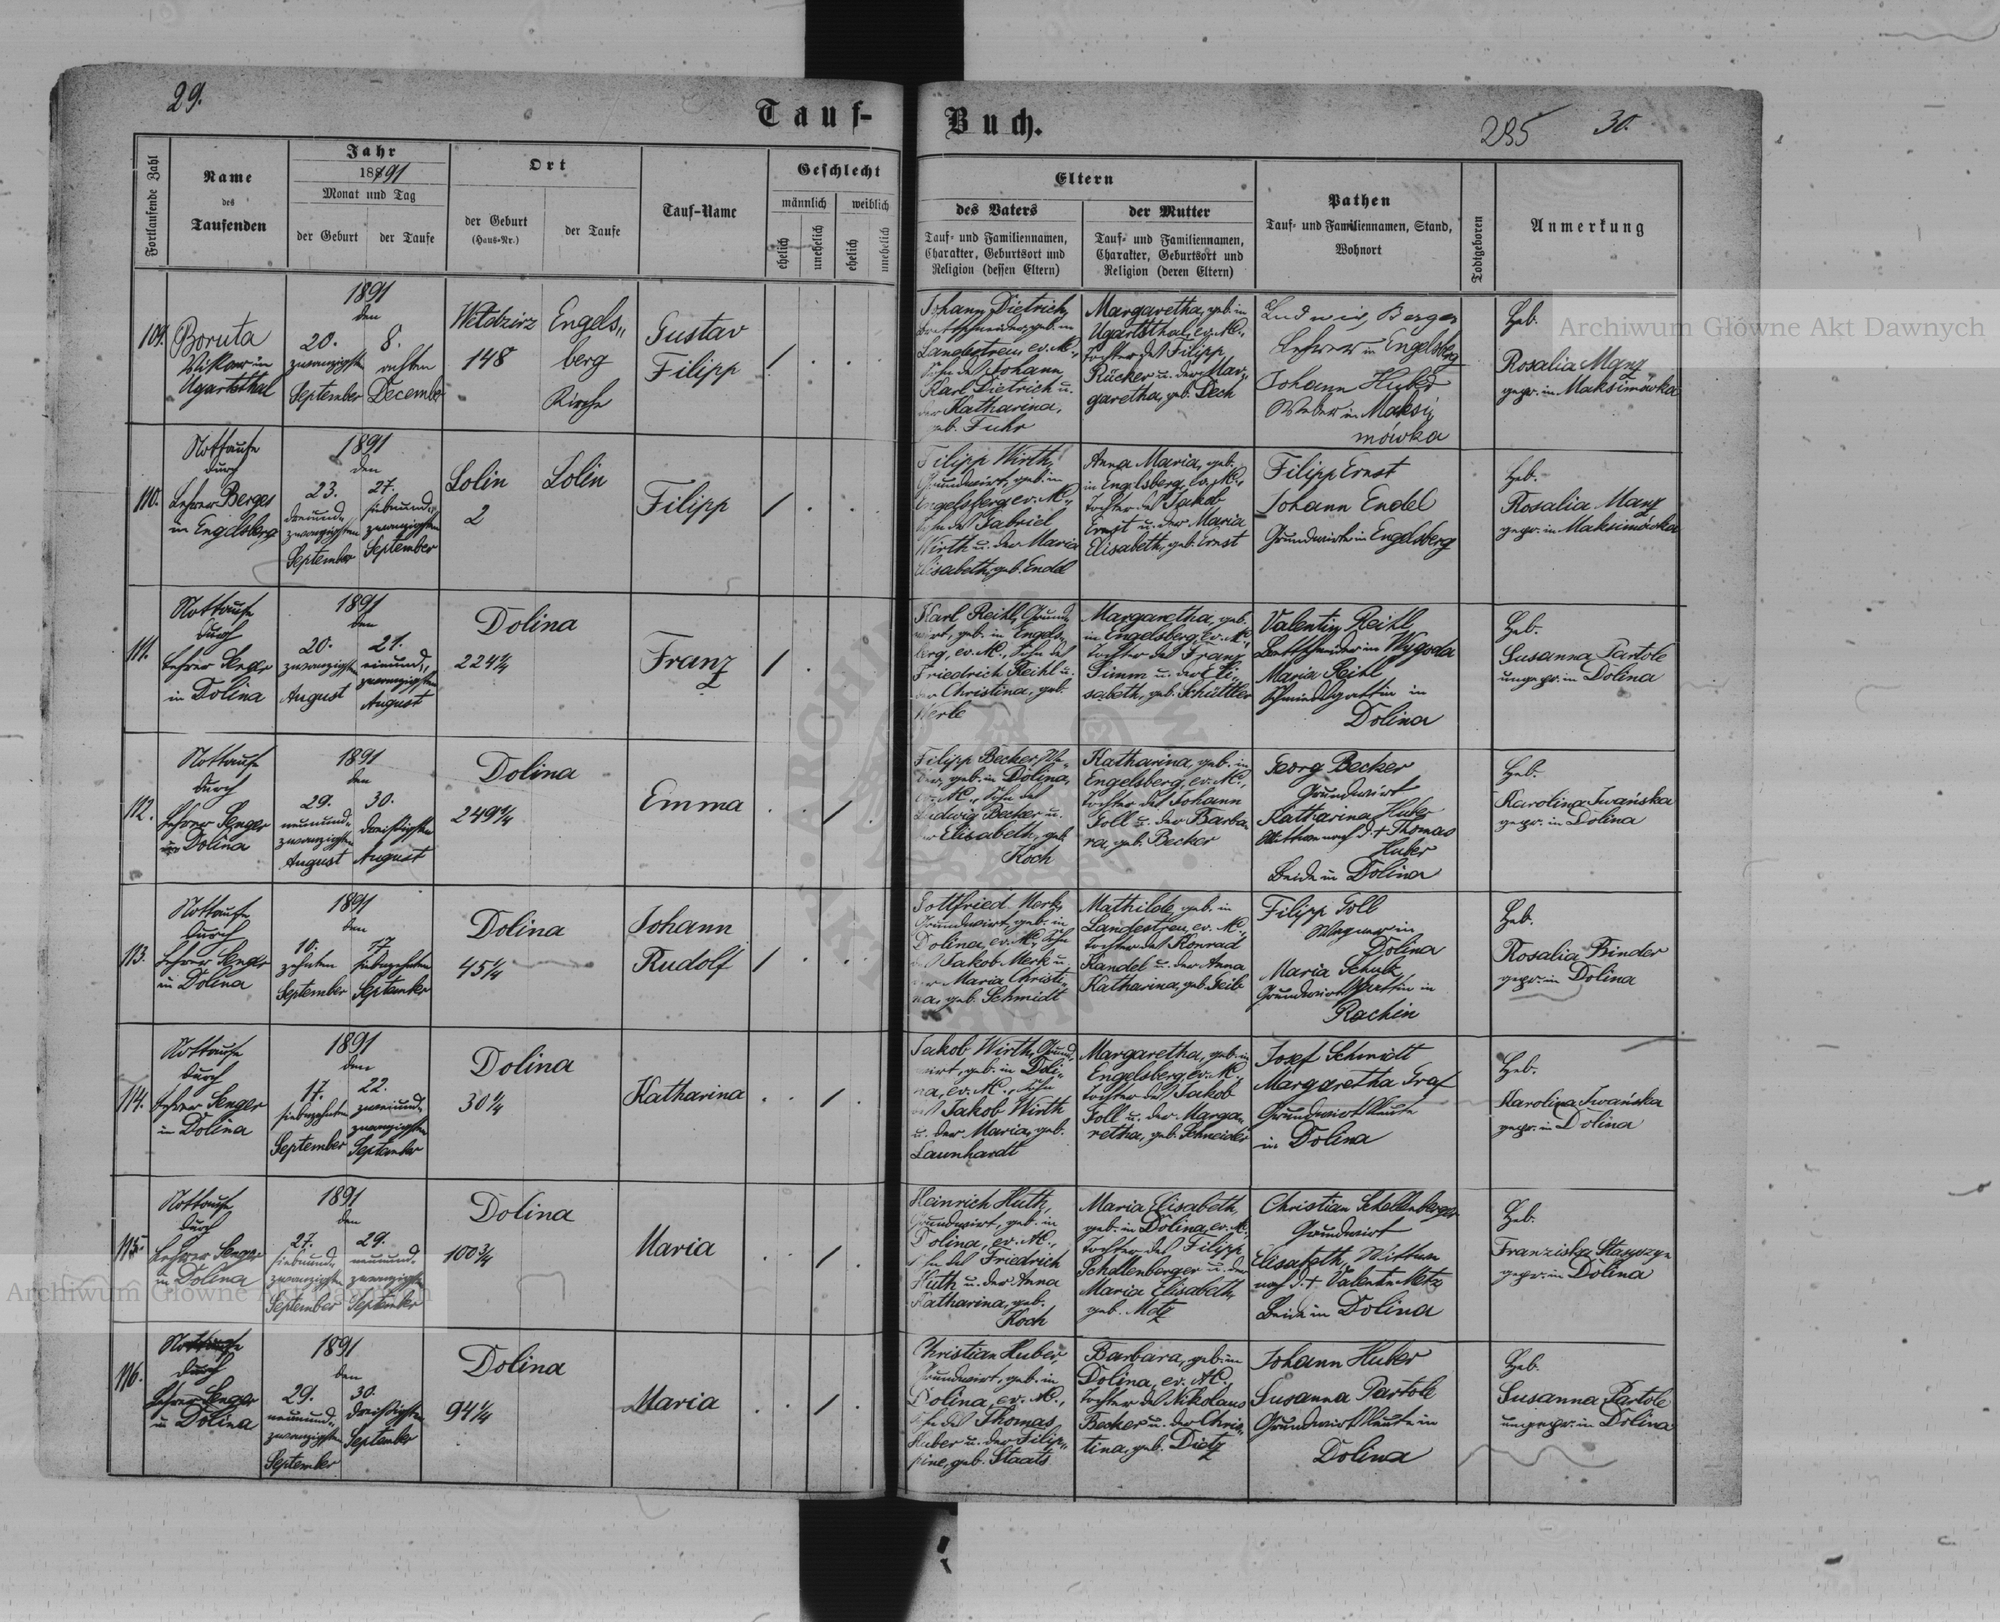 29.
Tauf-
Buch.
235
30.
Fortlaufende Zahl
Name
des
Taufenden
Jahr
1891
Monat und Tag
der Geburt
der Taufe
Ort
der Geburt
(Haus-Nr.)
der Taufe
Tauf-Name
Geschlecht
männlich
weiblich
ehelich
unehelich
ehelich
unehelich
Eltern
des Vaters
Tauf- und Familiennamen,
Charakter, Geburtsort und
Religion (dessen Eltern)
der Mutter
Tauf- und Familiennamen,
Charakter, Geburtsort und
Religion (deren Eltern)
Pathen
Tauf- und Familiennamen, Stand,
Wohnort
Todtgeboren
Anmerkung
109.
Boruta
Vikar in
Ugartsthal
1891
den
20.
zwanzigsten
September
8.
achten
December
Weldzirz
148
Engels„
berg
Kirche
Gustav
Filipp
Johann Dietrich,
Brettschneider, geb. in
Landestreu, ev. A.C.,
Sohn des Johann
Karl Dietrich u.
der Katharina,
geb. Fuhr
Margaretha, geb. in
Ugartsthal, ev. A.C.,
Tochter des Filipp
Rücker u. der Mar„
garetha, geb. Dech
Ludwig Berger
Lehrer in Engelsberg
Johann Huber
Weber in Maksi„
mówka
Heb.
Rosalia Manz
gepr. in Maksimówka
110.
Nottaufe
durch
Lehrer Berger
in Engelsberg
1891
den
23.
dreiund„
zwanzigsten
September
27.
siebund„
zwanzigsten
September
Lolin
2
Lolin
Filipp
Filipp Wirth,
Grundwirt, geb. in
Engelsberg, ev. A.C.,
Sohn des Gabriel
Wirth u. der Maria
Elisabeth, geb. Endel
Anna Maria, geb.
in Engelsberg, ev. A.C.,
Tochter des Jakob
Ernst u. der Maria
Elisabeth, geb. Ernst
Filipp Ernst
Johann Endel
Grundwirte in Engelsberg
Heb.
Rosalia Manz
gepr. in Maksimówka
111.
Nottaufe
durch
Lehrer Senger
in Dolina
1891
den
20.
zwanzigsten
August
21.
einund„
zwanzigsten
August
Dolina
224¼
Franz
Karl Reihl, Grund„
wirt, geb. in Engels„
berg, ev. A.C., Sohn des
Friedrich Reihl u.
der Christina, geb.
Werle
Margaretha, geb.
in Engelsberg, ev. A.C.,
Tochter des Franz
Simm u. der Eli„
sabeth, geb. Schüttler
Valentin Reihl
Brettschneider in Wygoda
Maria Reihl
Schmiedsgattin in
Dolina
Heb.
Susanna Partole
ungepr. in Dolina
112.
Nottaufe
durch
Lehrer Senger
in Dolina
1891
den
29.
neunund„
zwanzigsten
August
30.
dreißigsten
August
Dolina
249¼
Emma
Filipp Becker,
geb. in Dolina,
ev. A.C., Sohn des
Ludwig Becker u.
der Elisabeth, geb.
Koch
Katharina, geb. in
Engelsberg, ev. A.C.,
Tochter des Johann
Foll u. der Barba„
ra, geb. Becker
Georg Becker
Grundwirt
Katharina Huber
Wittwe nach d. + Thomas
Huber
Beide in Dolina
Heb.
Karolina Iwańska
gepr. in Dolina
113.
Nottaufe
durch
Lehrer Senger
in Dolina
1891
den
10.
zehnten
September
17.
siebzehnten
September
Dolina
45¼
Johann
Rudolf
Gottfried Merk,
Grundwirt, geb. in
Dolina, ev. A.C., Sohn
des Jakob Merk u.
der Maria Christi„
na, geb. Schmidt
Mathilde, geb. in
Landestreu, ev. A.C.,
Tochter des Konrad
Kandel u. der Anna
Katharina, geb. Geib
Filipp Foll
Wagner in
Dolina
Maria Schulz
Grundwirtsgattin in
Rachin
Heb.
Rosalia Binder
gepr. in Dolina
114.
Nottaufe
durch
Lehrer Senger
in Dolina
1891
den
17.
siebzehnten
September
22.
zweiund„
zwanzigsten
September
Dolina
30¼
Katharina
Jakob Wirth, Grund„
wirt, geb. in Doli„
na, ev. A.C., Sohn
des Jakob Wirth
u. der Maria, geb.
Launhardt
Margaretha, geb. in
Engelsberg, ev. A.C.,
Tochter des Jakob
Foll u. der Marga„
retha, geb. Schneider
Josef Schmidt
Margaretha Graf
Grundwirtsleute
in Dolina
Heb.
Karolina Iwańska
gepr. in Dolina
115.
Nottaufe
durch
Lehrer Senger
in Dolina
1891
den
27.
siebund„
zwanzigsten
September
29.
neunund„
zwanzigsten
September
Dolina
100¾
Maria
Heinrich Huth,
Grundwirt, geb. in
Dolina, ev. A.C.,
Sohn des Friedrich
Huth u. der Anna
Katharina, geb.
Koch
Maria Elisabeth,
geb. in Dolina, ev. A.C.,
Tochter des Filipp
Schallenberger u. der
Maria Elisabeth,
geb. Metz
Christian Schallenberger
Grundwirt
Elisabeth, Wittwe
nach d. + Valentin Metz
Beide in Dolina
Heb.
Franziska
gepr. in Dolina
116.
Nottaufe
durch
Lehrer Senger
in Dolina
1891
den
29.
neunund„
zwanzigsten
September
30.
dreißigsten
September
Dolina
94¼
Maria
Christian Huber,
Grundwirt, geb. in
Dolina, ev. A.C.,
Sohn des Thomas
Huber u. der Filip„
pine, geb. Staats
Barbara, geb. in
Dolina, ev. A.C.,
Tochter des Nikolaus
Becker u. der Chris„
tina, geb. Dietz
Johann Huber
Susanna Partole
Grundwirtsleute in
Dolina
Heb.
Susanna Partole
ungepr. in Dolina
Archiwum Główne Akt Dawnych
Archiwum Główne Akt Dawnych